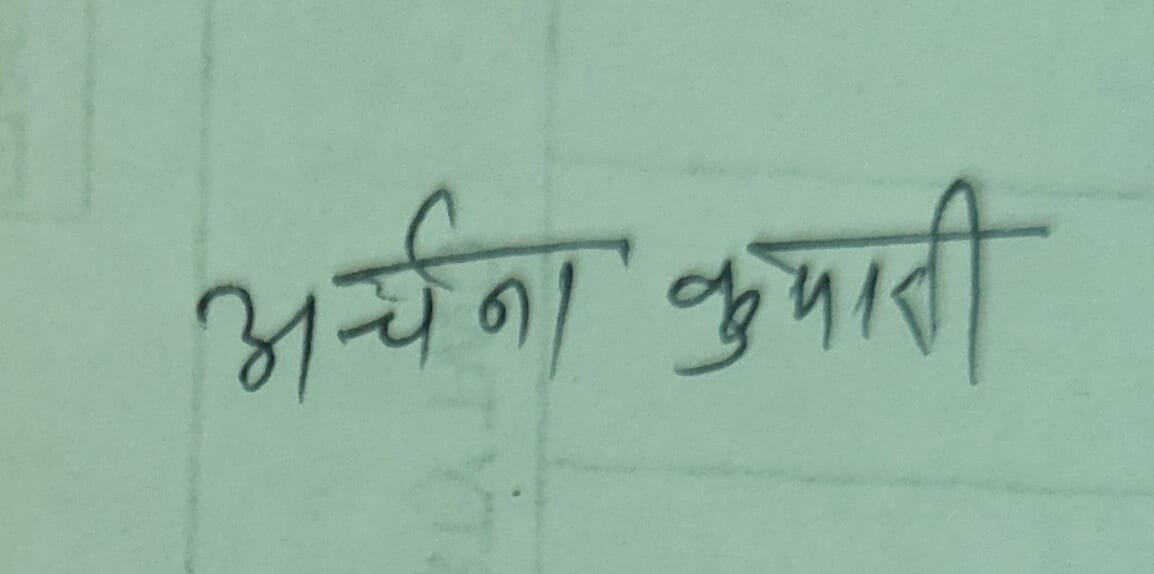 अर्चना कुमारी